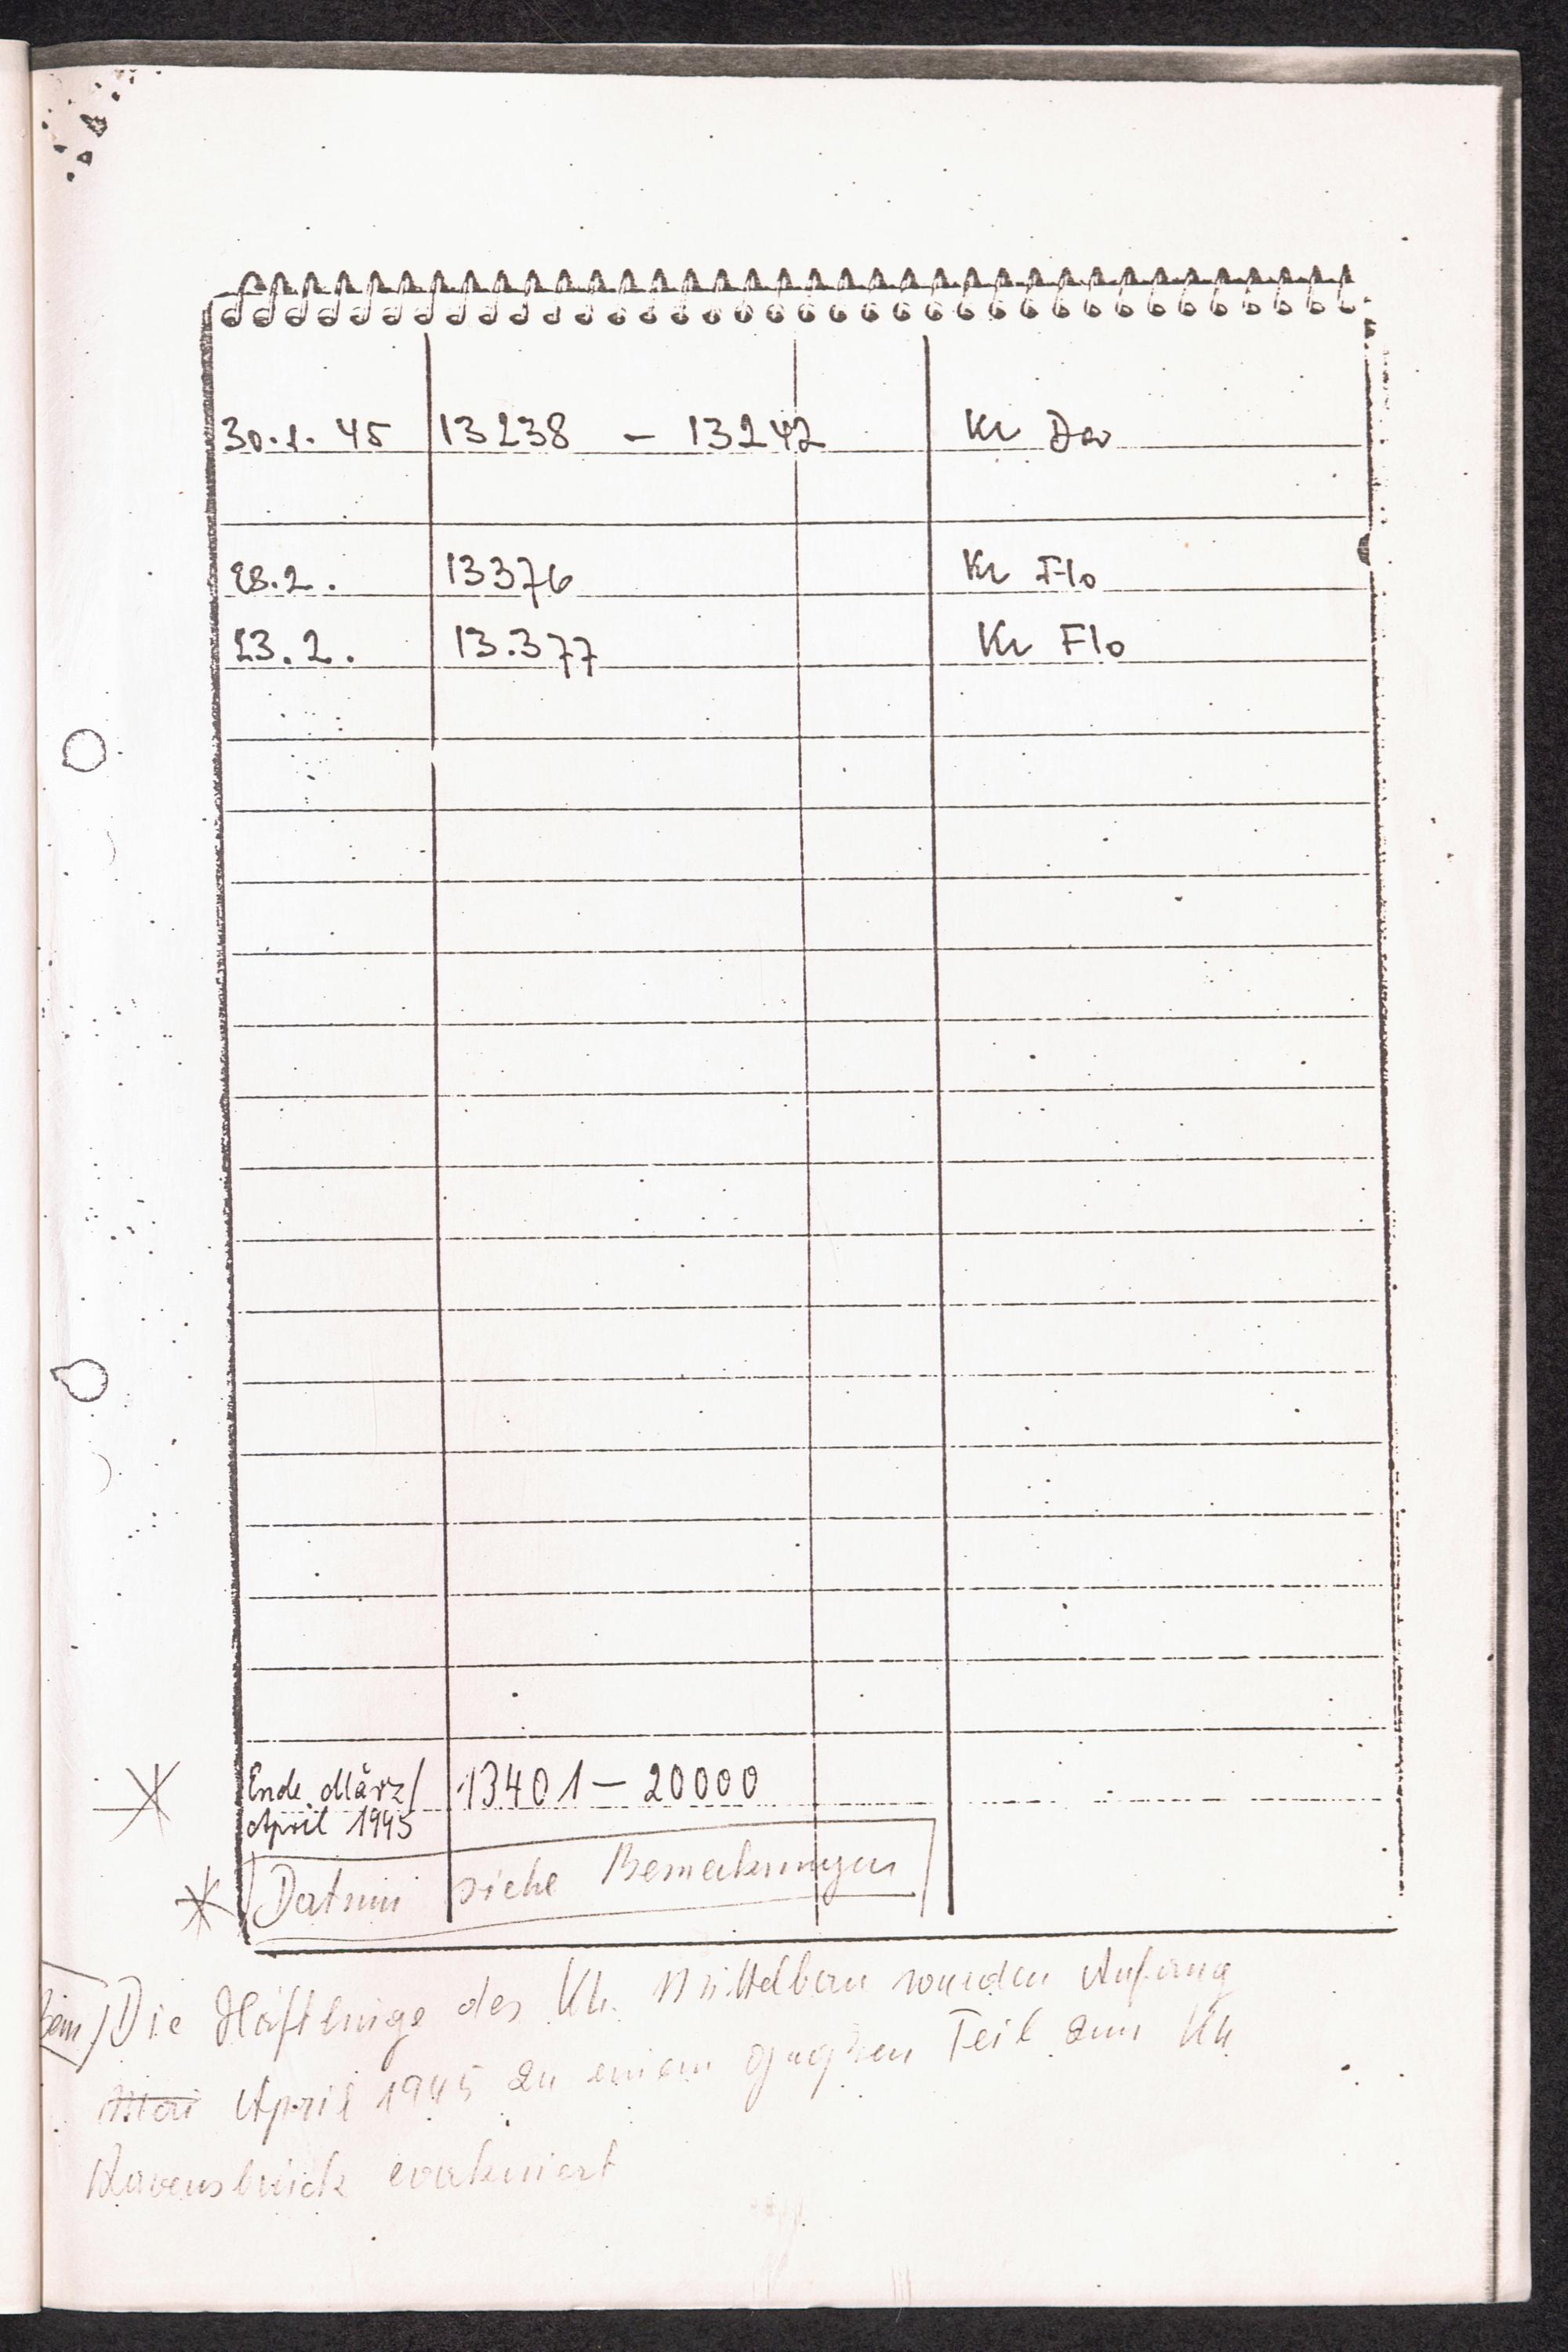 30.1.45 13238 – 13242 Kl Da
28.2. 13376 Kl Flo
23.2. 13.377 Kl Flo
Ende März/ 13401 – 20000
April 1945
Datum siehe Bemerkungen
Bem/ Die Häftlinge des KL. Mittelbau wurden Anfang
April 1945 zu einem großen Teil zum KL
Ravensbrück evakuiert